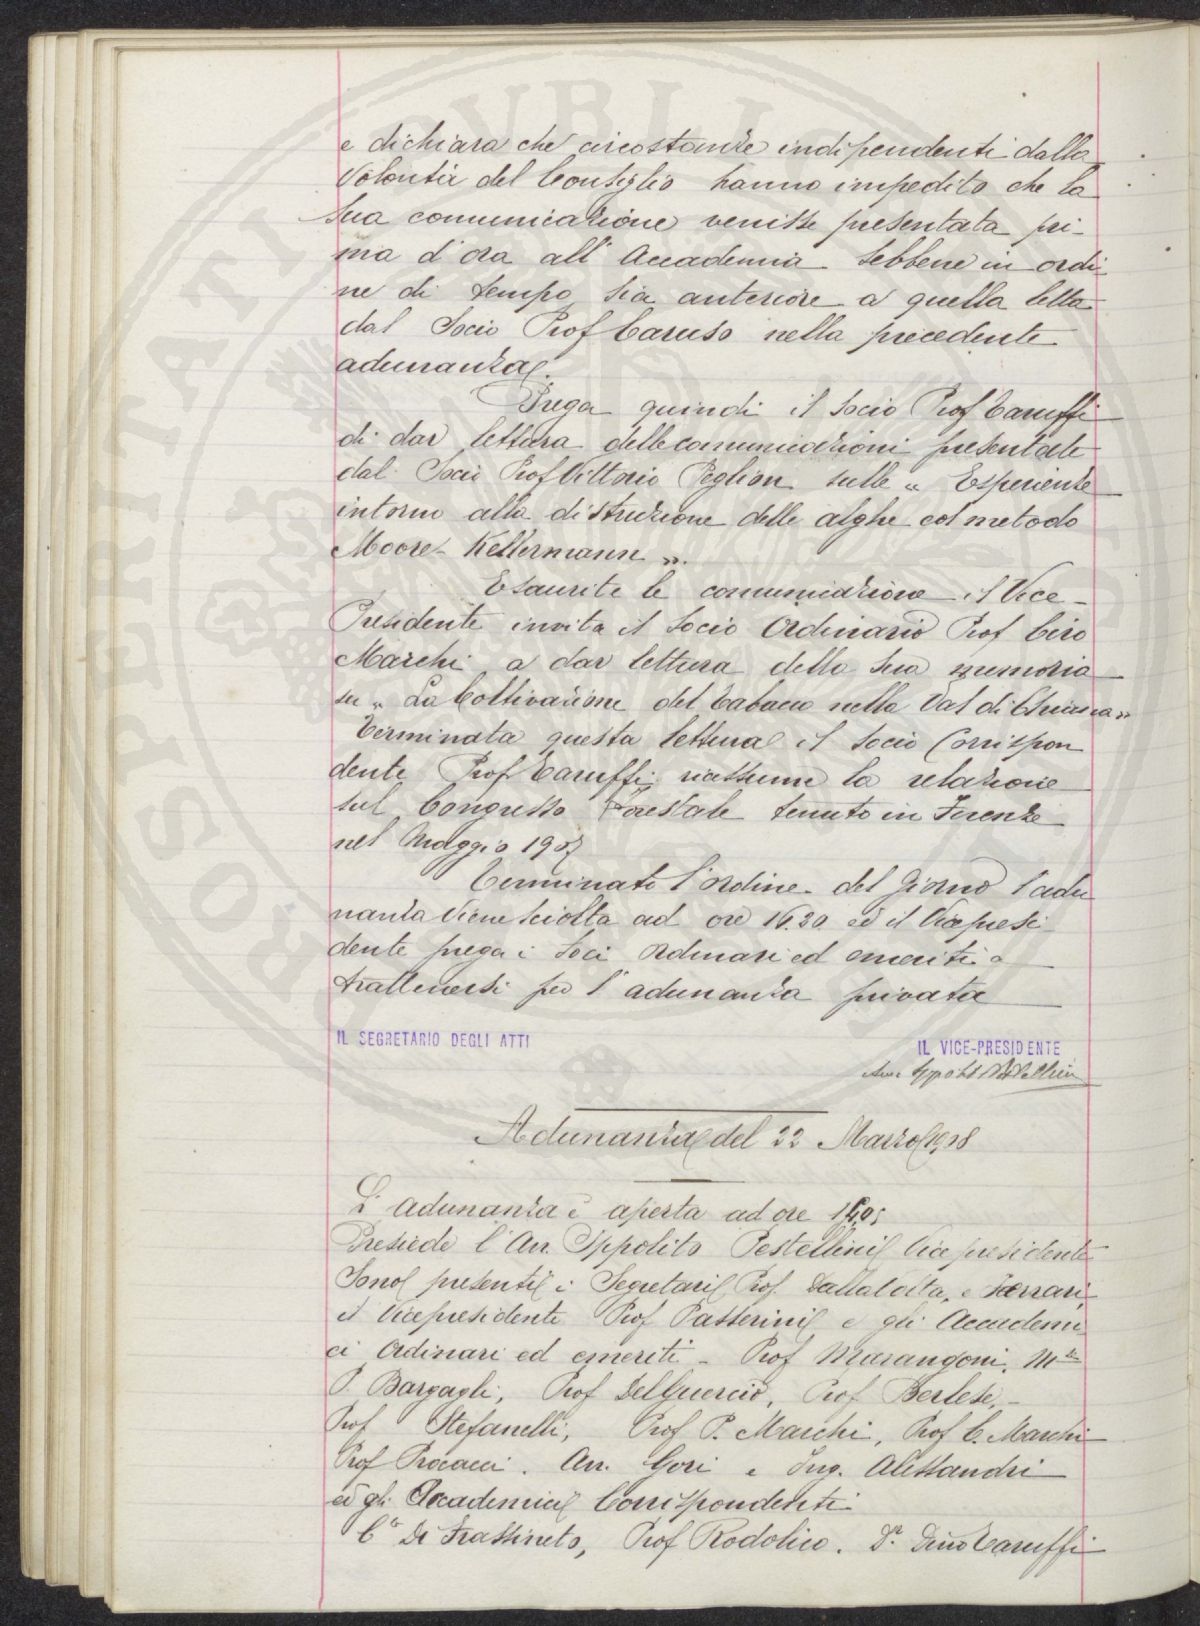 e dichiara che circostanze indipendenti dalla
volontà del Consiglio hanno impedito che la
sua comunicazione venisse presentata pri-
ma d'ora all'Accademia sebbene in ordi-
ne di tempo sia anteriore a quella letta
dal Socio Prof Caruso nella precedente
adunanza.
Prega quindi il Socio Prof Taruffi
di dar lettura delle comunicazioni presentate
dal Socio Prof Vittorio Peglion sulle "Esperienze
intorno alla distruzione delle alghe col metodo
Moore-Kellermann".
Esaurite le comunicazione il Vice-
Presidente invita il Socio Ordinario Prof Ciro
Marchi a dar lettura della sua memoria
su "La Coltivazione del Tabacco nella Val di Chiana"
Terminata questa lettura il Socio Corrispon
dente Prof Taruffi riassume la relazione
sul Congresso Forestale tenuto in Firenze
nel Maggio 1907
Terminato l'ordine del giorno l'adu
nanza viene sciolta ad ore 16.30 ed il Vicepresi
dente prega i Soci Ordinari ed emeriti a
trattenersi per l'adunanza privata
IL SEGRETARIO DEGLI ATTI
IL VICE-PRESIDENTE
Avv. Ippolito Pestellini
Adunanza del 22 Marzo 1908
L'adunanza è aperta ad ore
Presiede l'Avv. Ippolito Pestellini Vicepresidente
Sono presenti i Segretari Prof. Dalla Volta, e Ferrari,
il Vicepresidente Prof Passerini e gli Accademi
ci Ordinari ed emeriti - Prof Marangoni, M.se
P. Bargagli, Prof Del Guercio, Prof Berlese, -
Prof Stefanelli, Prof P. Marchi, Prof C. Marchi
Prof Procacci. Avv. Gori e Ing. Alessandri
ed gli Accademici Corrispondenti
C.te Di Frassineto, Prof Rodolico. D.r Dino Taruffi